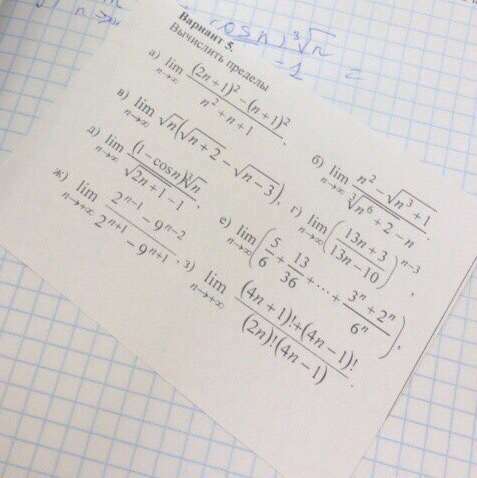 n→∞
cos n) ∛n
- 1 =
Вариант 5.
Вычислить пределы
а) lim_{n→∞} ((2n+1)² − (n+1)²)/(n² + n + 1),
б) lim_{n→∞} (n² − √(n³ + 1))/(∛(n⁶ + 2) − n).
в) lim_{n→∞} √n(√(n+2) − √(n−3)),
г) lim_{n→∞} ((13n+3)/(13n−10))^{n−3},
д) lim_{n→∞} ((1−cosn)∛n)/(√(2n+1) − 1),
е) lim_{n→∞} (5/6 + 13/36 + ... + (3ⁿ + 2ⁿ)/6ⁿ),
ж) lim_{n→+∞} (2^{n−1} − 9^{n−2})/(2^{n+1} − 9^{n+1}),
з) lim_{n→+∞} ((4n+1)!+(4n−1)!)/((2n)!(4n−1)).